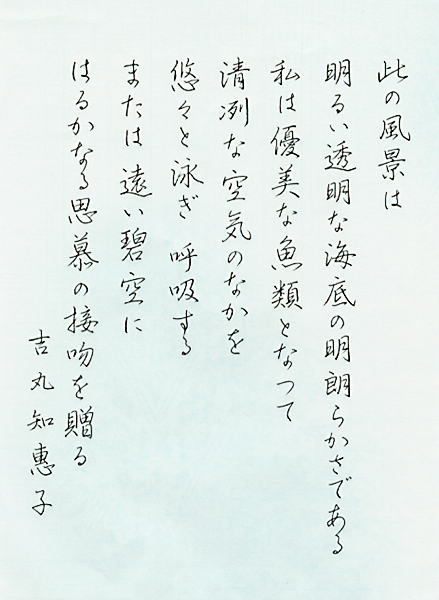 此の風景は
明るい透明な海底の明朗らかさである
私は優美な魚類となつて
清冽な空気のなかを
悠々と泳ぎ 呼吸する
または 遠い碧空に
はるかなる思慕の接吻を贈る
吉丸知恵子